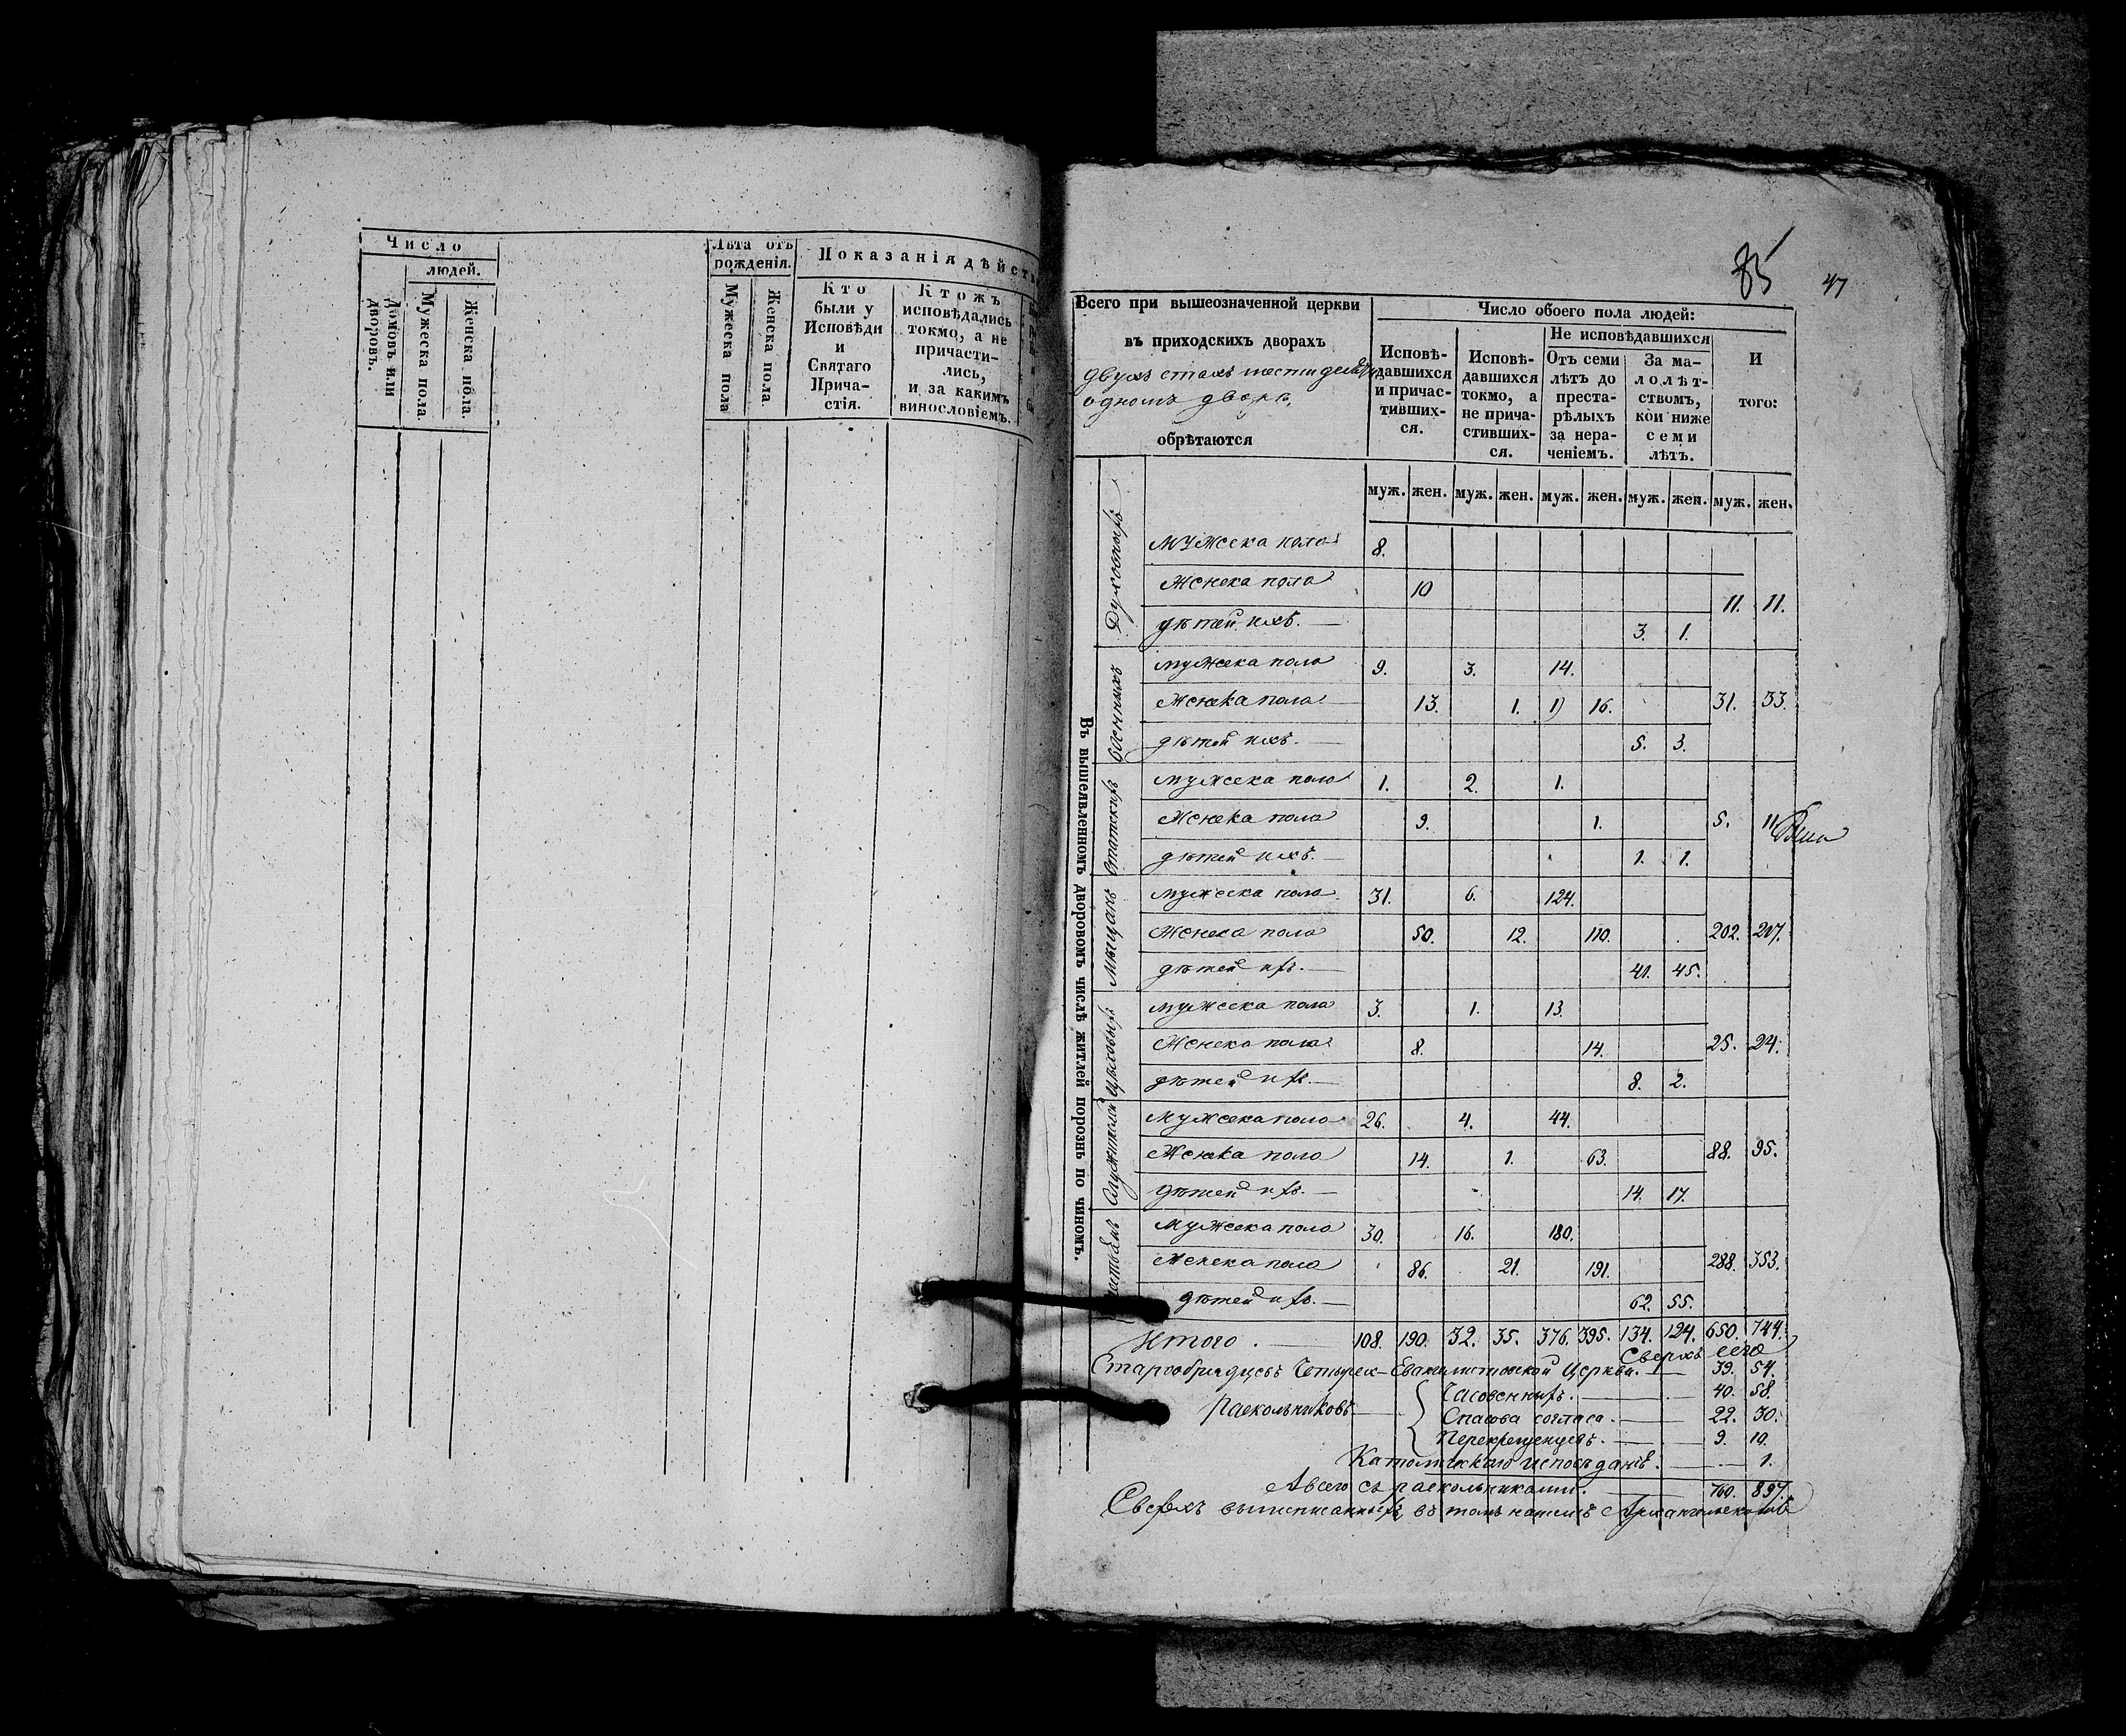 Число
людей.
Домовъ или дворовъ.
Мужеска пола.
Женска пола.
Лѣта отъ рожденія.
Мужеска пола
Женска пола.
Показанія дѣйст
Кто были у Исповѣди и Святаго Прича- стія.
Ктожъ исповѣдались токмо, а не причасти- лись, и за какимъ винословіемъ.
85 47
Всего при вышеозначенной церкви
въ приходскихъ дворахъ
двухъ стахъ шестидесяти
одномъ дворе,
обрѣтаются
Число обоего пола людей:
Исповѣ- давшихся и причас- тивших- ся.
Исповѣ- давшихся токмо, а не прича- стивших- ся.
Не исповѣдавшихся
Отъ семи лѣтъ до преста- рѣлыхъ за нера- ченіемъ.
За ма- лолѣт- ствомъ, кои ниже семи лѣтъ.
И того:
муж. жен. муж. жен. муж. жен. муж. жен. муж. жен.
Въ вышеявленномъ дворовомъ числѣ житлей порознь по чиномъ.
Духовныхъ
Мужеска пола 8.
Женска пола 10
11. 11.
дѣтей ихъ. — 3. 1.
Военныхъ
Мужеска пола 9. 3. 14.
Женска пола — 13. 1. 1) 16. 31. 33.
дѣтей ихъ. — 5. 3.
Статскихъ
Мужеска пола 1. 2. 1.
Женска пола 9. 1. 5. 11
дѣтей ихъ. — 1. 1.
Мѣщанъ
Мужеска пола 31. 6. 124.
Женска пола 50. 12. 110. 202. 207.
дѣтей ихъ. — 41. 45.
Цѣховыхъ
Мужеска пола 3. 1. 13.
Женска пола 8. 14. 25. 24.
дѣтей ихъ. — 8. 2.
Служителей
Мужеска пола 26. 4. 44.
Женска пола 14. 1. 63. 88. 95.
дѣтей ихъ. — 14. 17.
Мужеска пола 30. 16. 180.
Женска пола 86. 21. 191. 288. 353.
дѣтей ихъ. — 62. 55.
Итого. — 108. 190. 32. 35. 376. 395. 134. 124. 650. 744.
Сверхъ сего
Старообрядцевъ Четырех-Евангелистовской Церкви. — 39. 54.
Раскольниковъ
Часовенныхъ. — 40. 58.
Спасова согласа. — 22. 30.
Перекрещенцевъ. — 9. 10.
Католическаго исповѣданія. — 1.
А всего съ раскольниками. — 760. 897.
Сверхъ вышеписанныхъ, въ томъ нашемъ Архангельскомъ